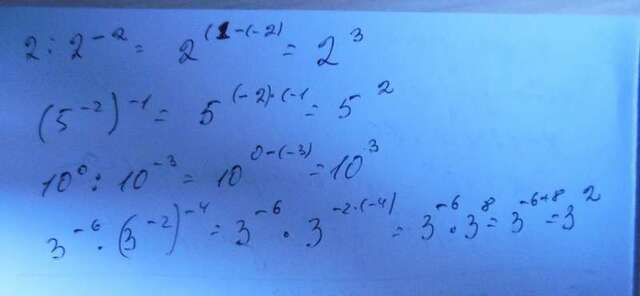 2 : 2⁻² = 2⁽¹⁻⁽⁻²⁾ = 2³
(5⁻²)⁻¹ = 5⁽⁻²⁾·⁽⁻¹ = 5²
10⁰ : 10⁻³ = 10⁰⁻⁽⁻³⁾ = 10³
3⁻⁶ · (3⁻²)⁻⁴ = 3⁻⁶ · 3⁻²·⁽⁻⁴⁾ = 3⁻⁶ · 3⁸ = 3⁻⁶⁺⁸ = 3²